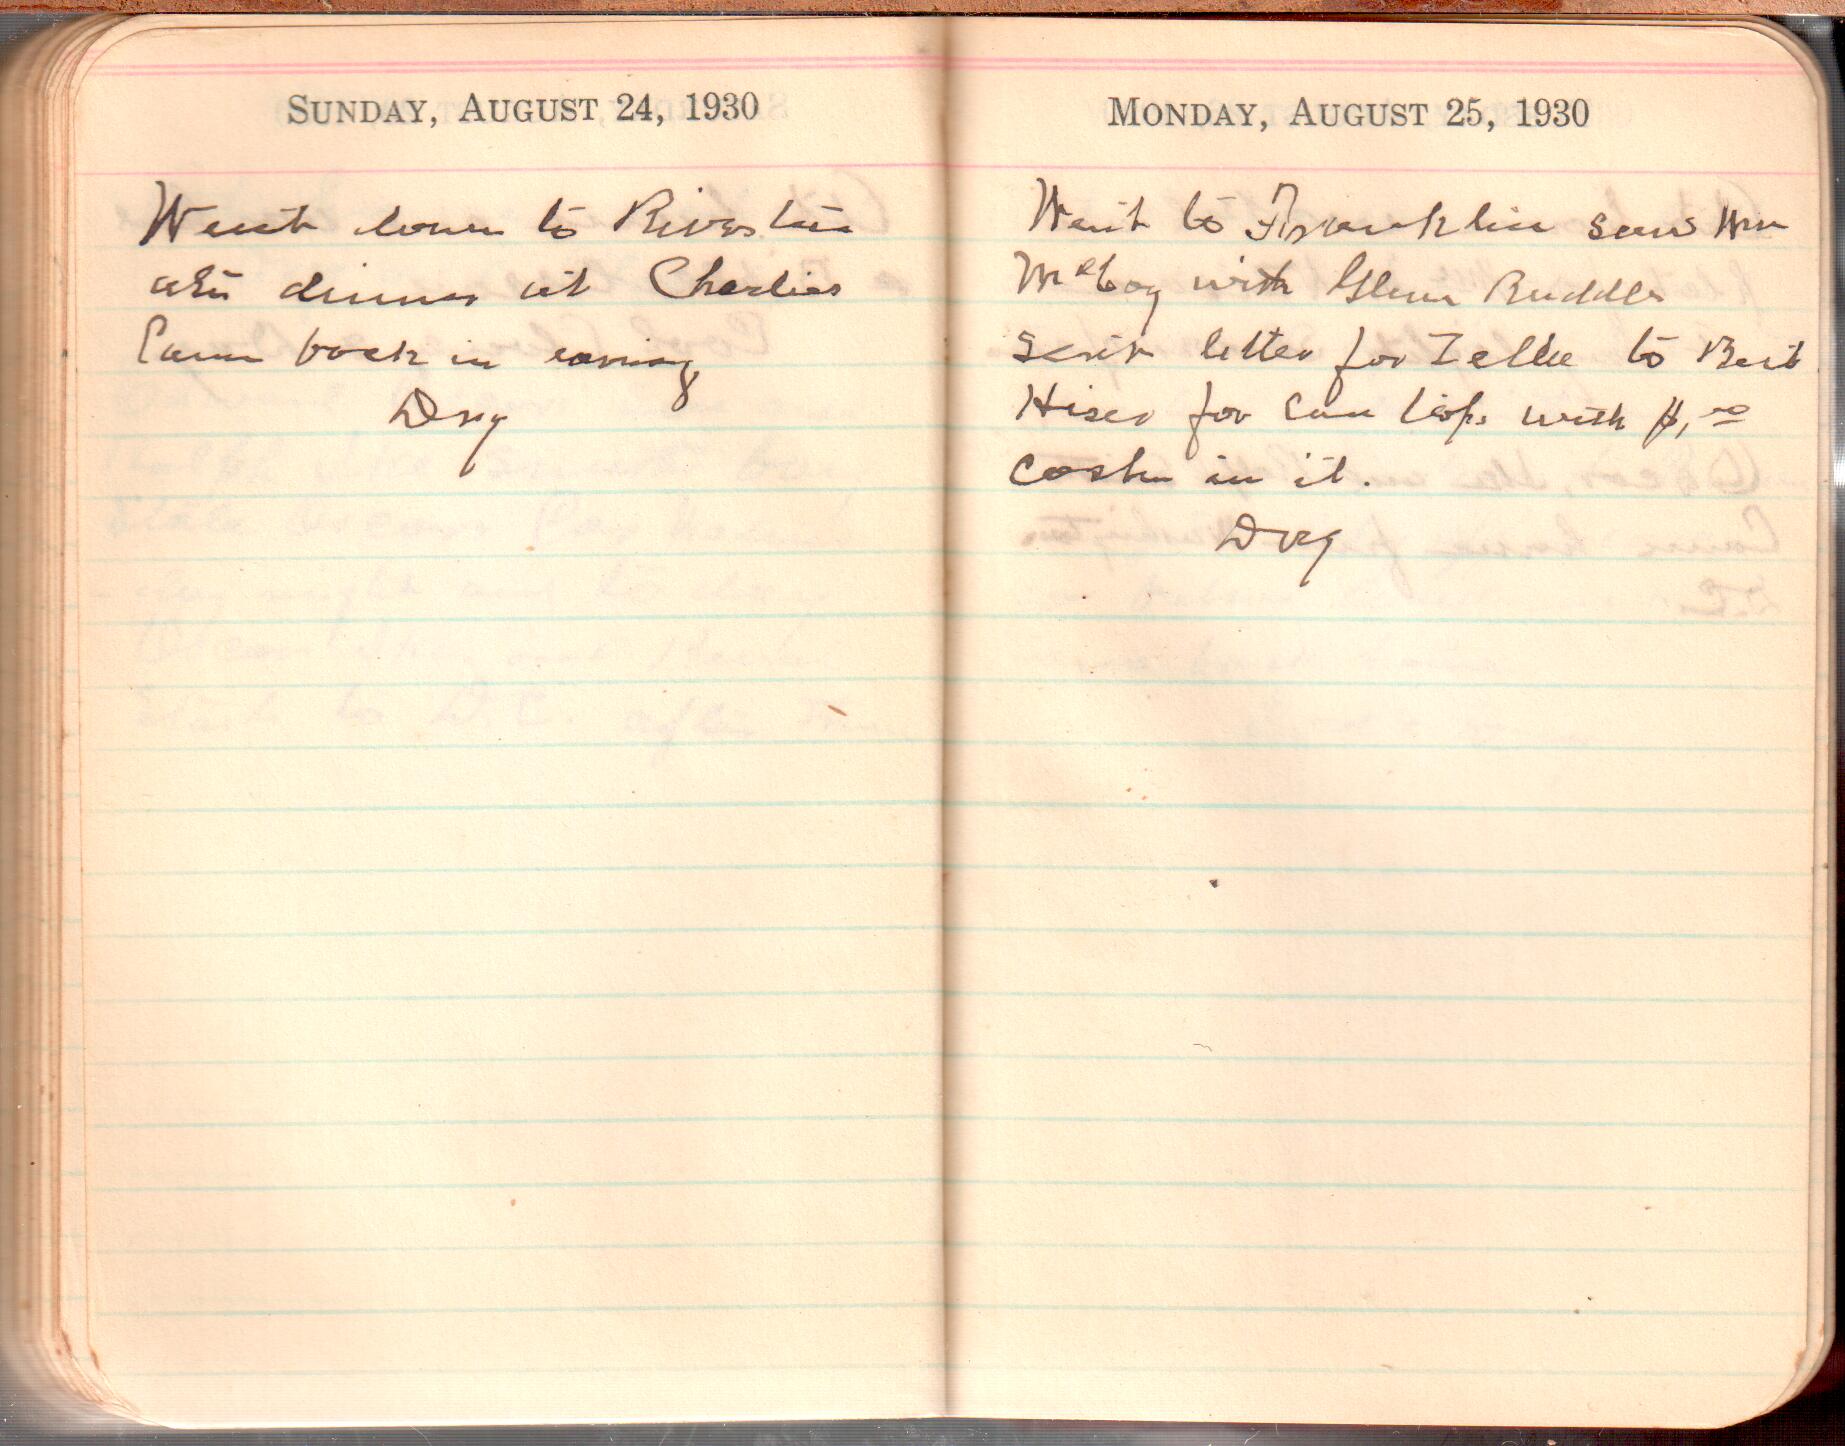 SUNDAY, AUGUST 24, 1930
Went down to Riverton
ate dinner at Charlies
Came back in evening
Dry
MONDAY, AUGUST 25, 1930
Went to Franklin saw Wm
McCoy with Glenn Ruddle
Sent letter for Zellie to Bert
Hiser for Can tops with
cash in it.
Dry